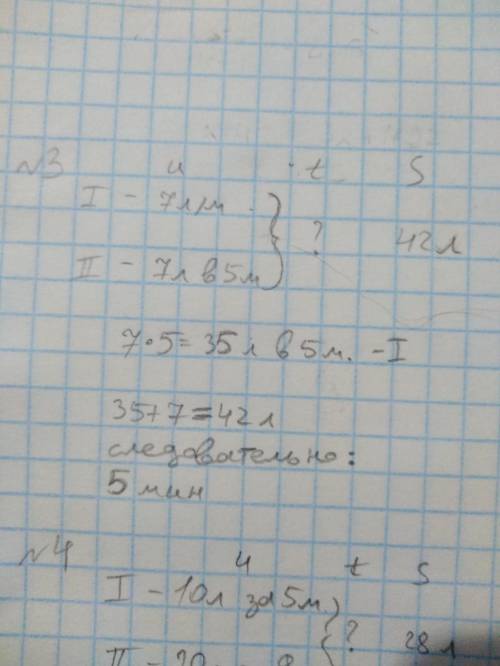 №3 u t S
I - 7л/м
? 42л
II - 7л в 5м
7•5=35л в 5м. -I
35+7=42л
следовательно:
5 мин
№4 u t S
I - 10л за 5м
II - ? 28л